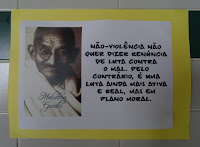 NÃO-VIOLÊNCIA NÃO
QUER DIZER RENÚNCIA
DE LUTA CONTRA
O MAL. PELO
CONTRÁRIO, É UMA
LUTA AINDA MAIS ATIVA
E REAL, MAS EM
PLANO MORAL.
Mahatma
Gandhi